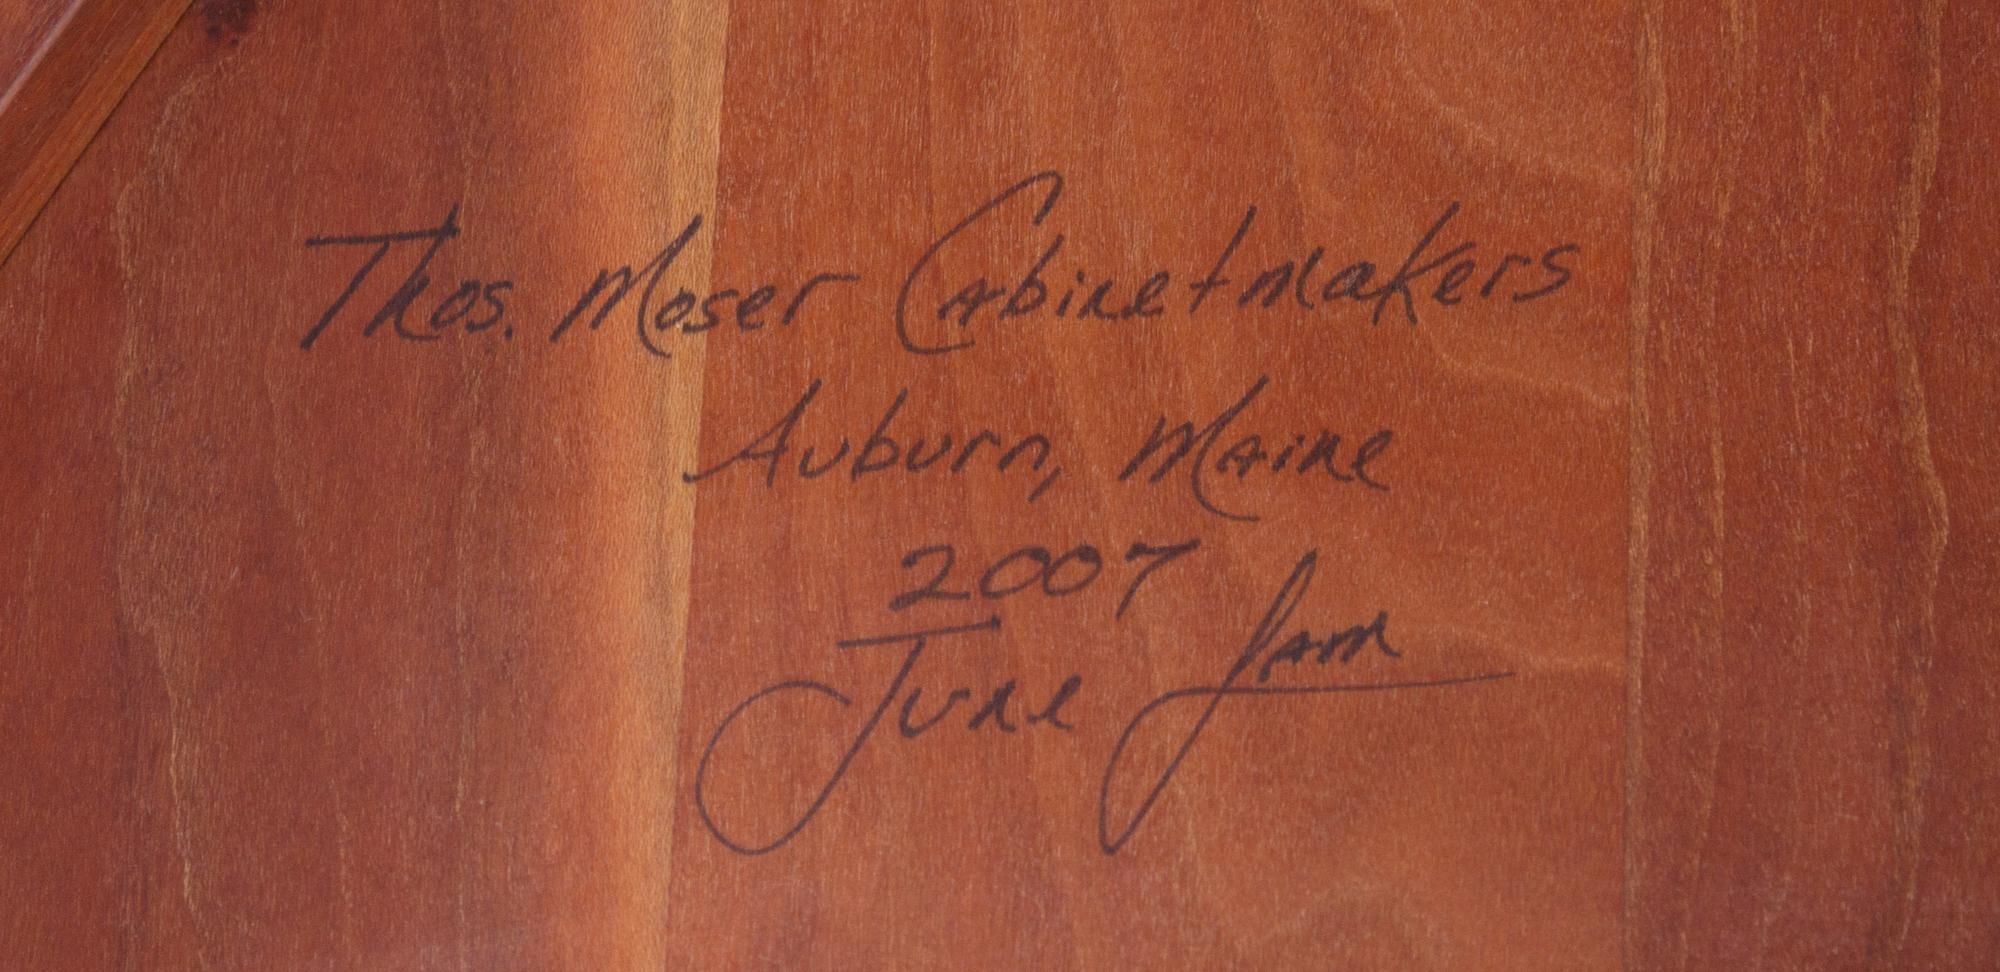 Thos. Moser Cabinetmakers
Auburn, Maine
2007
June